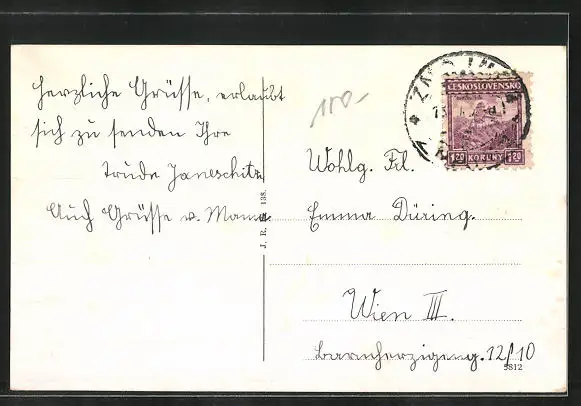 herzliche Grüsse, erlaubt
sich zu senden Ihre
Trude Janeschitz
Auch Grüsse v. Mama
150-
ČESKOSLOVENSKO
1.20 KORUNY 1.20
Wohlg. Frl.
Emma Düring
Wien III.
Barmherzigeng. 12/10
J. R. 138.
5812